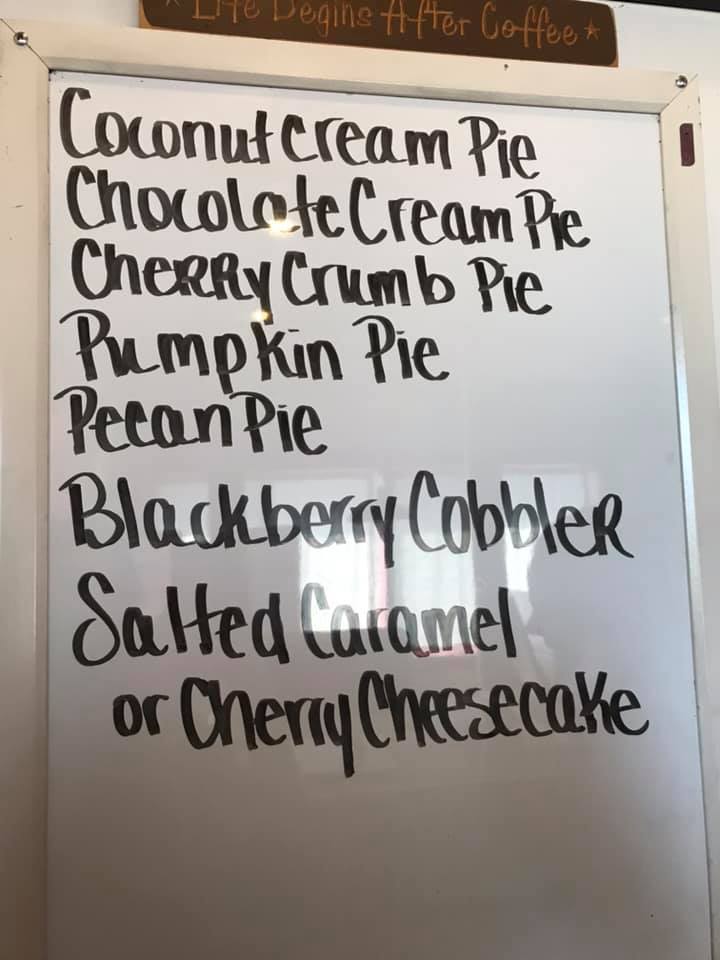 * Life Begins After Coffee *
Coconut Cream Pie
Chocolate Cream Pie
Cherry Crumb Pie
Pumpkin Pie
Pecan Pie
Blackberry Cobbler
Salted Caramel
or Cherry Cheesecake